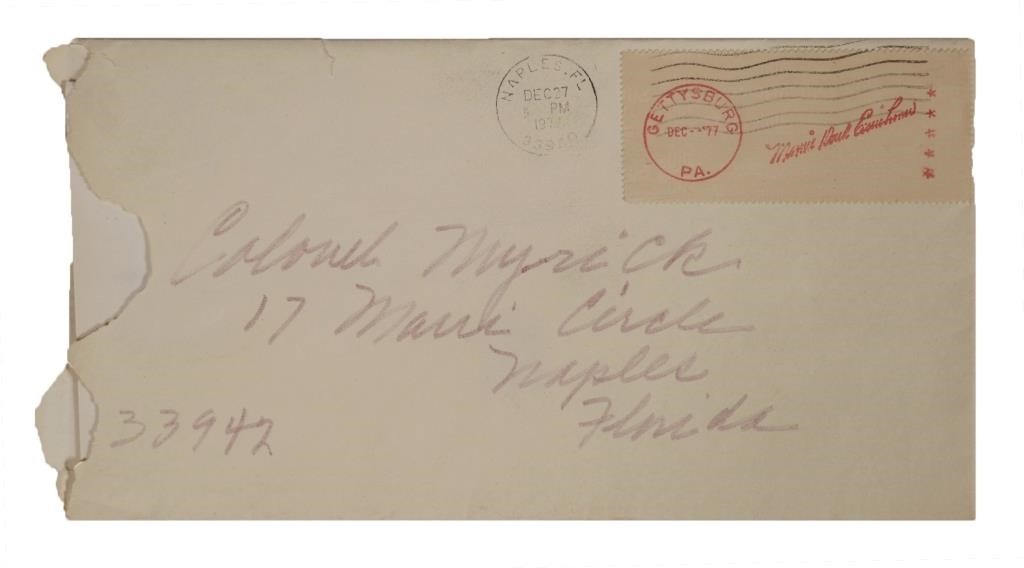 NAPLES, FL
DEC 27
PM
GETTYSBURG
DEC -- '77
PA.
Mamie Doud Eisenhower
Colonel Myrick
17 Circle
Naples
Florida
33942